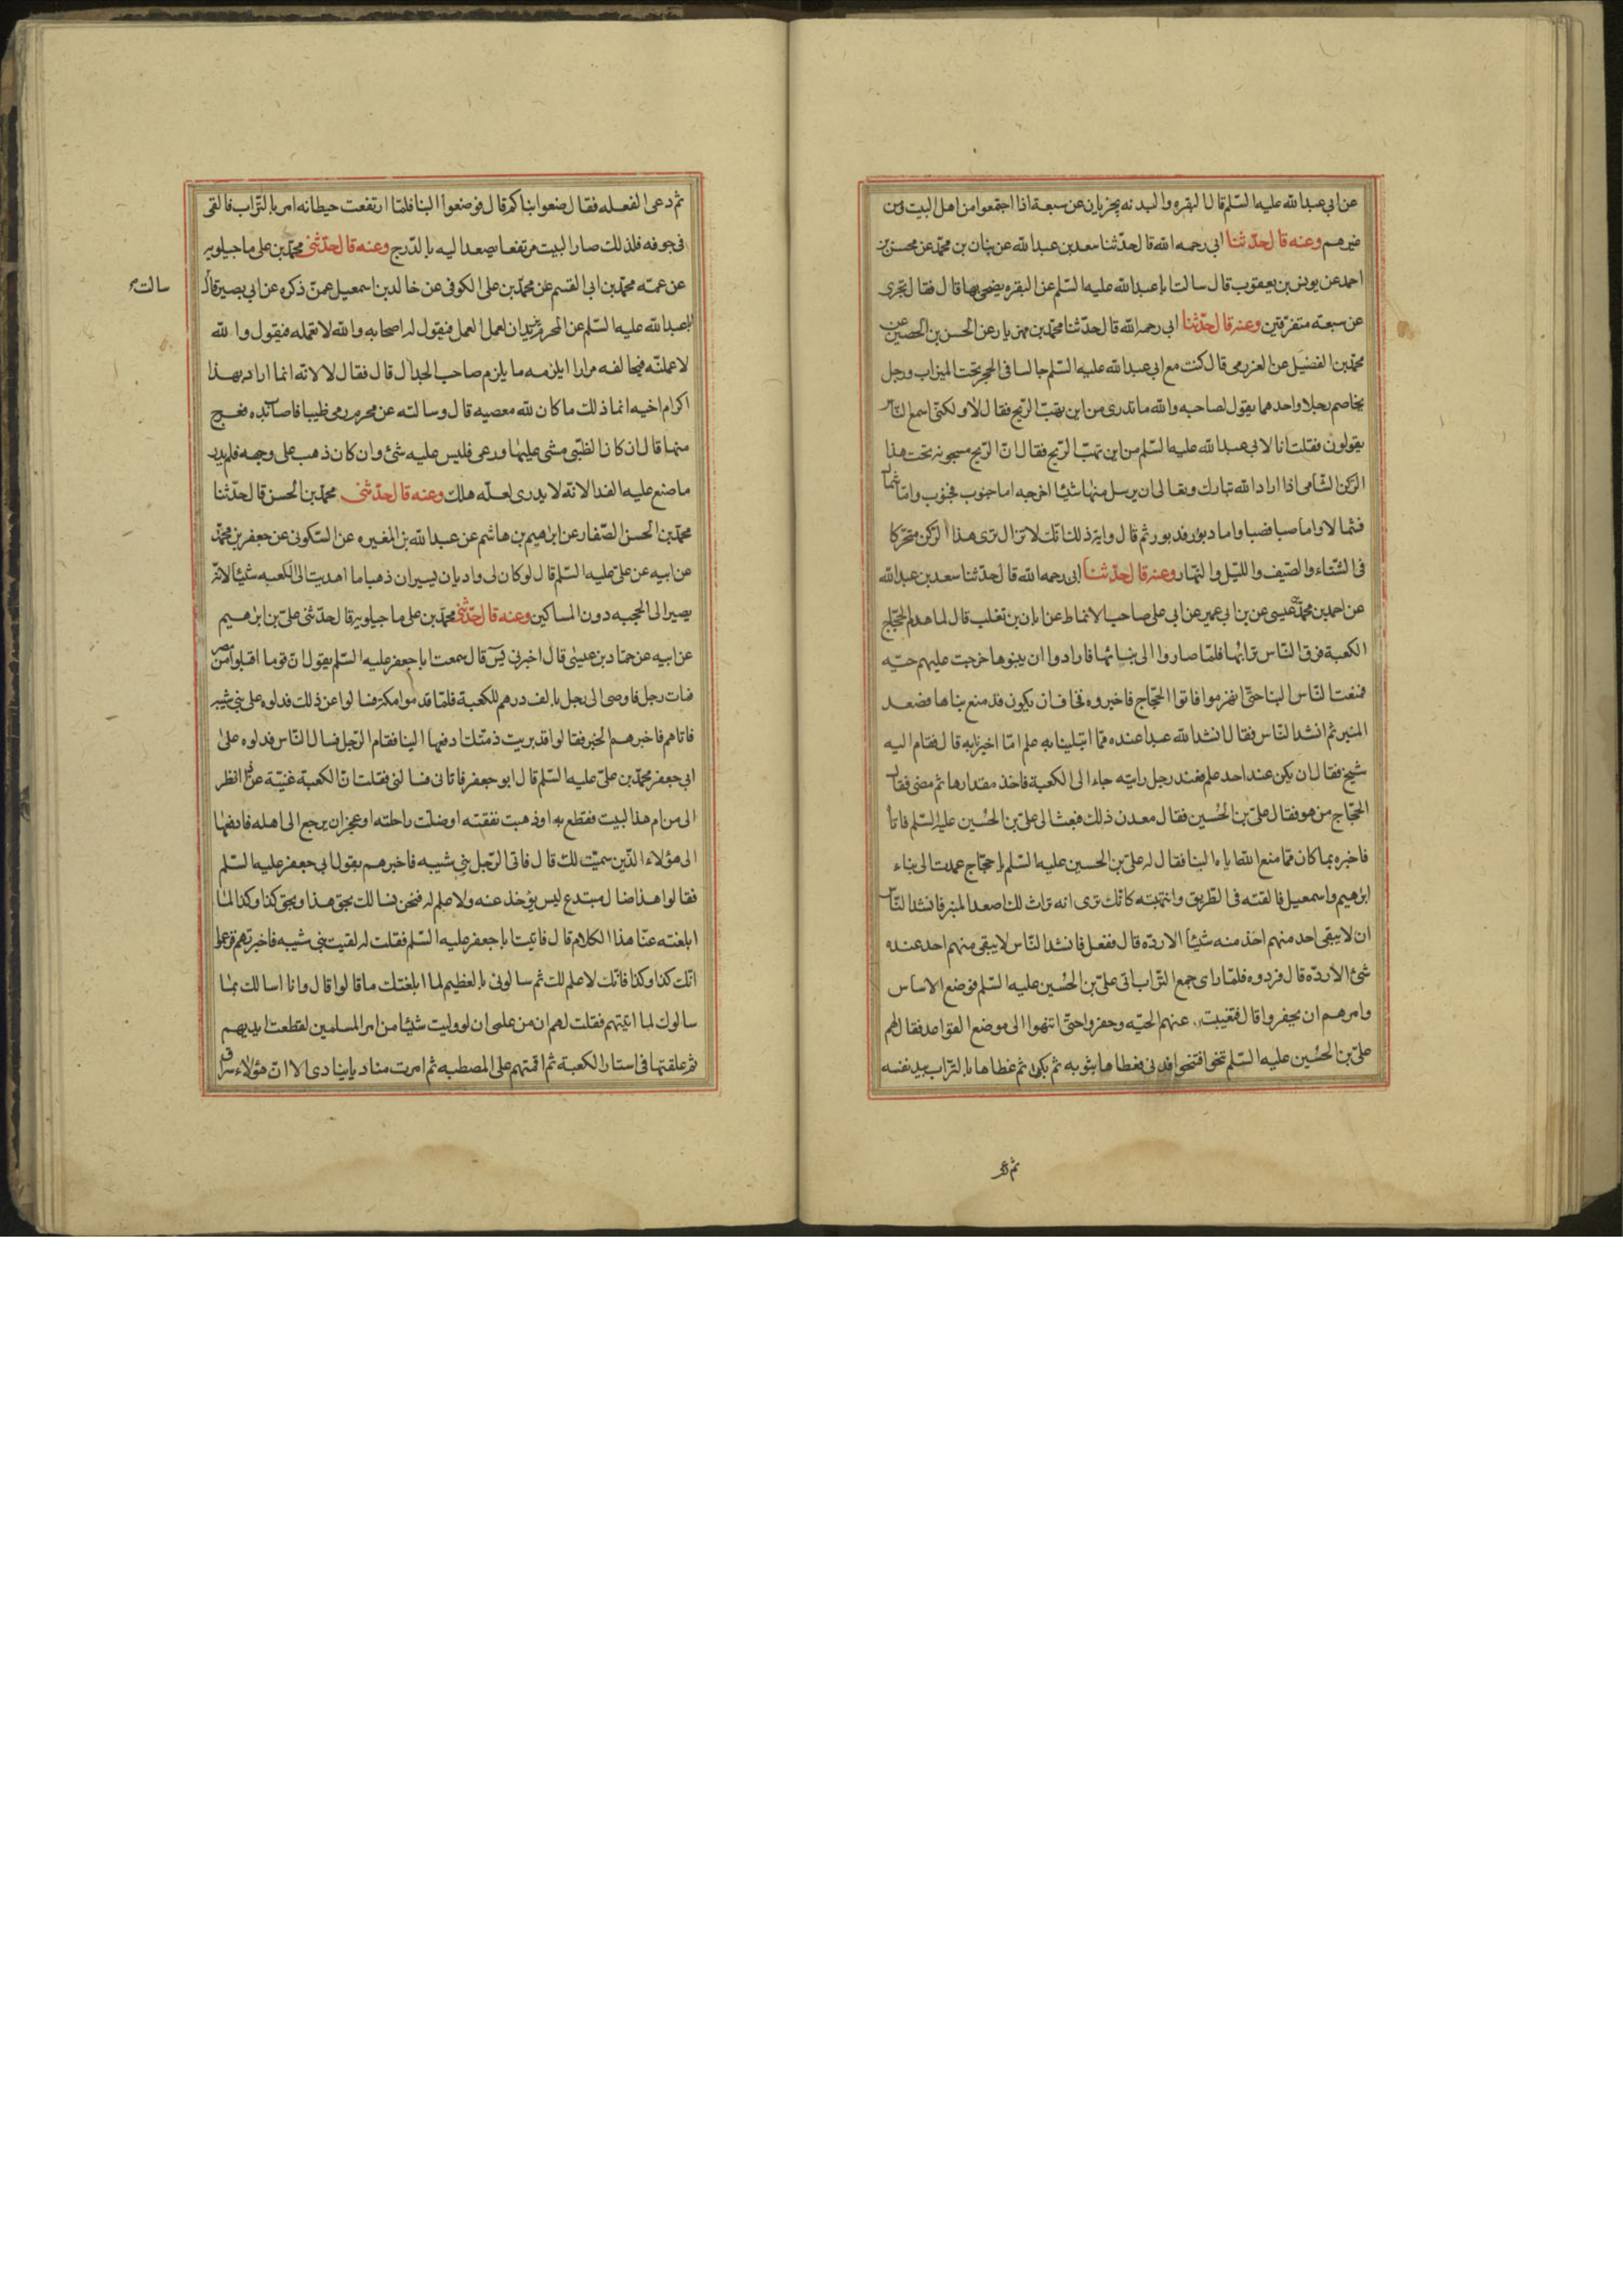 عن ابي عبدالله عليه السّلم قال البقره والبدنه يجزيان عن سبعة اذا اجتمعوا من اهل البيت ومن
غيرهم وعنه قال حدّثنا ابي رحمه الله قال حدّثنا سعد بن عبدالله عن بنان بن محمّد عن محسن بن
احمد عن يونس بن يعقوب قال سالت ابا عبدالله عليه السّلم عن البقره يضحى بها قال فقال تجزى
عن سبعة متفرّقين وعنه قال حدّثنا ابي رحمه الله قال حدّثنا محمّد بن مهزيار عن الحسن بن الحصين عن
محمّد بن الفضيل عن العزرمى قال كنت مع ابي عبدالله عليه السّلم جالسا فى الحجر تحت الميزاب ورجل
يخاصم رجلا واحدهما يقول لصاحبه والله ما تدرى من اين تهبّ الرّيح فقال لا ولكنّى اسمع النّاس
يقولون فقلت انا لابي عبدالله عليه السّلم من اين تهبّ الرّيح فقال انّ الرّيح مسجونه تحت هذا
الرّكن الشّامى اذا اراد الله تبارك وتعالى ان يرسل منها شيئا اخرجه اما جنوب فجنوب وامّا شمال
فشمالا واما صبا فصبا واما دبور فدبور ثم قال واية ذلك انّك لا تزال ترى هذا الرّكن متحركا
فى الشّتاء والصّيف والليل والنّهار وعنه قال حدّثنا ابى رحمه الله قال حدّثنا سعد بن عبدالله
عن احمد بن محمّد بن عيسى عن بن ابي عمير عن ابي على صاحب الانماط عن ابان بن تغلب قال لما هدم الحجّاج
الكعبة فرق النّاس ترابها فلمّا صاروا الى بنائها فارادوا ان يبنوها خرجت عليهم حيّه
فمنعت النّاس البنا حتّى انهزموا فاتوا الحجّاج فاخبروه فخاف ان يكون قد منع بناها فصعد
المنبر ثم انشد النّاس فقال انشد الله عبدا عنده ممّا ابتلينا به علم امّا اخبرنا به قال فقام اليه
شيخ فقال ان يكن عند احد علم فعند رجل رايته جاء الى الكعبة فاخذ مقدارها ثم مضى فقال
الحجّاج من هو فقال علىّ بن الحُسين فقال معدن ذلك فبعث الى علىّ بن الحُسين عليه السّلم فاتاه
فاخبره بما كان ممّا منع الله اياه البنا فقال له علىّ بن الحسين عليه السّلم يا حجّاج عمدت الى بناء
ابرهيم واسمعيل فالقته فى الطّريق وانتهبته كانّك ترى انه تراث لك اصعد المنبر فانشد النّاس
ان لا يبقى احد منهم اخذ منه شيئا الا ردّه قال ففعل فانشد النّاس لا يبقى منهم احد عنده
شئ الا ردّه قال فردوه فلمّا راى جمع التّراب اتى علىّ بن الحُسين عليه السّلم فوضع الاساس
وامرهم ان يحفروا قال فتغيبت عنهم الحيّه وحفروا حتّى انتهوا الى موضع القواعد فقال لهم
علىّ بن الحُسين عليه السّلم تنحوا فتنحوا فدنى فغطاها بثوبه ثم بكى ثم غطاها بالتّراب بيد نفسه
ثم دعى
ثم دعى الفعله فقال ضعوا بناكم قال فوضعوا البنا فلمّا ارتفعت حيطانه امر بالتّراب فالقى
فى جوفه فلذلك صار البيت مرتفعا يصعد اليه بالدّرج وعنه قال حدّثنى محمّد بن على ماجيلويه
عن عمّه محمّد بن ابى القسم عن محمّد بن على الكوفى عن خالد بن اسمعيل عمن ذكره عن ابي بصير قال
سالت
ابا عبدالله عليه السّلم عن المحرم يريد ان يعمل العمل فيقول له اصحابه والله لا تعمله فيقول والله
لاعملنّه فيخالفه مرارا ايلزمه ما يلزم صاحب الجدال قال فقال لا لانه انما اراد بهذا
اكرام اخيه انما ذلك ما كان لله معصيه قال وسالته عن محرم رمى ظبيا فاصاب يده فعرج
منها قال ان كان الظّبى مشى عليها ورعى فليس عليه شئ وان كان ذهب على وجهه فلم يدر
ما صنع عليه الفدا لانّه لا يدرى لعلّه هلك وعنه قال حدّثنى محمّد بن الحسن قال حدّثنا
محمّد بن الحسن الصّفار عن ابرهيم بن هاشم عن عبدالله بن المغيره عن السّكونى عن جعفر بن محمّد
عن ابيه عن علىّ عليه السّلم قال لو كان لى واديان يسيران ذهبا ما اهديت الى الكعبه شيئا لانّه
يصير الى الحجبه دون المساكين وعنه قال حدّثنى محمّد بن على ماجيلويه قال حدّثنى علىّ بن ابرهيم
عن ابيه عن حمّاد بن عيسى قال اخبرنى يس قال سمعت ابا جعفر عليه السّلم يقول انّ قوما اقبلوا من مصر
فمات رجل فاوصى الى رجل بالف درهم للكعبة فلمّا قدموا مكة فسالوا عن ذلك فدلوه على بنى شيبه
فاتاهم فاخبرهم الخبر فقالوا قد بريت ذمّتك ادفعها الينا فقام الرّجل فسال النّاس فدلوه على
ابى جعفر محمّد بن علىّ عليه السّلم قال ابو جعفر فاتانى فسالنى فقلت انّ الكعبة غنيّة عن هذا انظر
الى من ام هذا البيت فقطع به او ذهبت نفقته او ضلّت راحلته او عجز ان يرجع الى اهله فادفعها
الى هؤلاء الّذين سميّت لك قال فاتى الرّجل بنى شيبه فاخبرهم بقول ابى جعفر عليه السّلم
فقالوا هذا ضال مبتدع ليس يؤخذ عنه ولا علم له فنحن نسالك بحق هذا وبحق كذا وكذا لما
ابلغته عنّا هذا الكلام قال فاتيت ابا جعفر عليه السّلم فقلت له لقيت بنى شيبه فاخبرتهم فزعموا
انّك كذا وكذا وانّك لا علم لك ثم سالونى بالعظيم لما ابلغتك ما قالوا قال وانا اسالك بما
سالوك لما اتيتهم فقلت لهم ان من علمى ان لو وليت شيئا من امر المسلمين لقطعت ايديهم
ثم علقتها فى استار الكعبة ثم اقمتهم على المصطبه ثم امرت مناديا ينادى الا انّ هؤلاء سراق